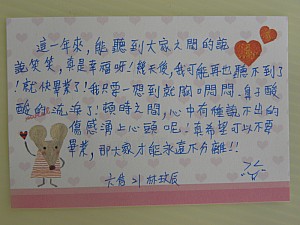 這一年來，能聽到大家之間的說
說笑笑，真是幸福呀！幾天後，我可能再也聽不到了
！就快畢業了！我只要一想到就胸口悶悶、鼻子酸
酸的流淚了！頓時之間，心中有種說不出的
傷感湧上心頭呢！真希望可以不要
畢業，那大家才能永遠不分離！！
大傳21 林玟辰